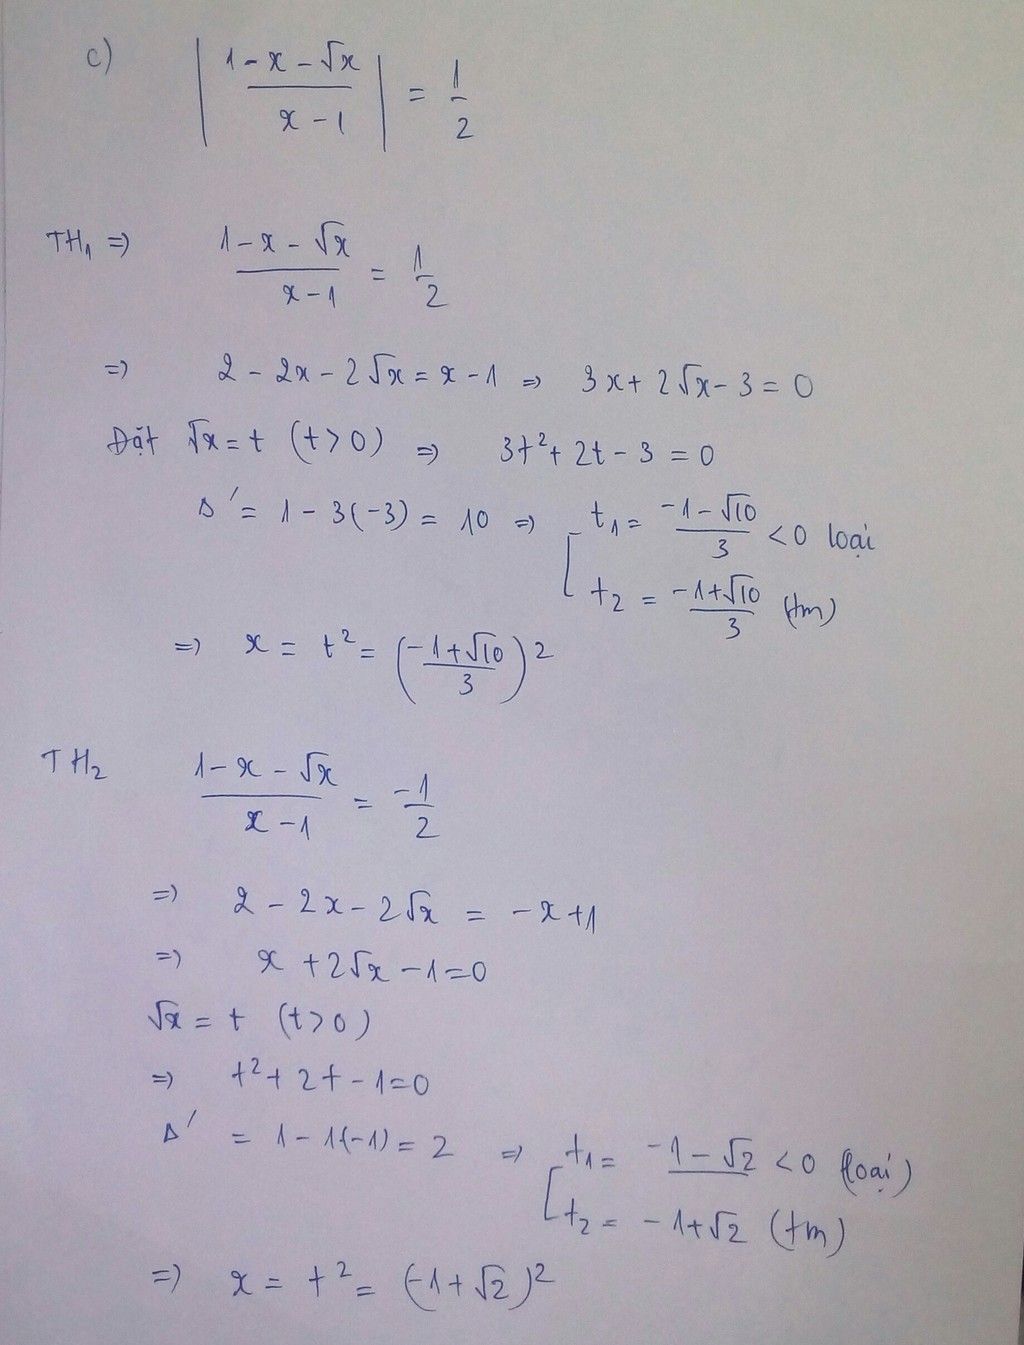 c) | (1 - x - √x) / (x - 1) | = 1/2
TH₁ ⇒ (1 - x - √x) / (x - 1) = 1/2
⇒ 2 - 2x - 2√x = x - 1 ⇒ 3x + 2√x - 3 = 0
Đặt √x = t (t > 0) ⇒ 3t² + 2t - 3 = 0
Δ' = 1 - 3(-3) = 10 ⇒ [ t₁ = (-1 - √10) / 3 < 0 loại
t₂ = (-1 + √10) / 3 (tm)
⇒ x = t² = ((-1 + √10) / 3)²
TH₂ (1 - x - √x) / (x - 1) = -1/2
⇒ 2 - 2x - 2√x = -x + 1
⇒ x + 2√x - 1 = 0
√x = t (t > 0)
⇒ t² + 2t - 1 = 0
Δ' = 1 - 1(-1) = 2 ⇒ [ t₁ = -1 - √2 < 0 (loại)
t₂ = -1 + √2 (tm)
⇒ x = t² = (-1 + √2)²